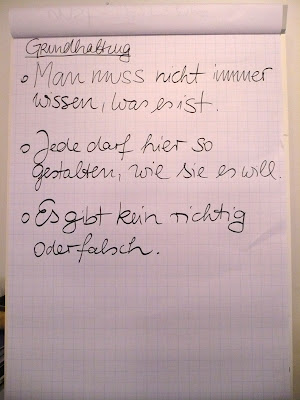 Grundhaltung
o Man muss nicht immer
wissen, was es ist.
o Jede darf hier so
gestalten, wie sie es will.
o Es gibt kein richtig
oder falsch.